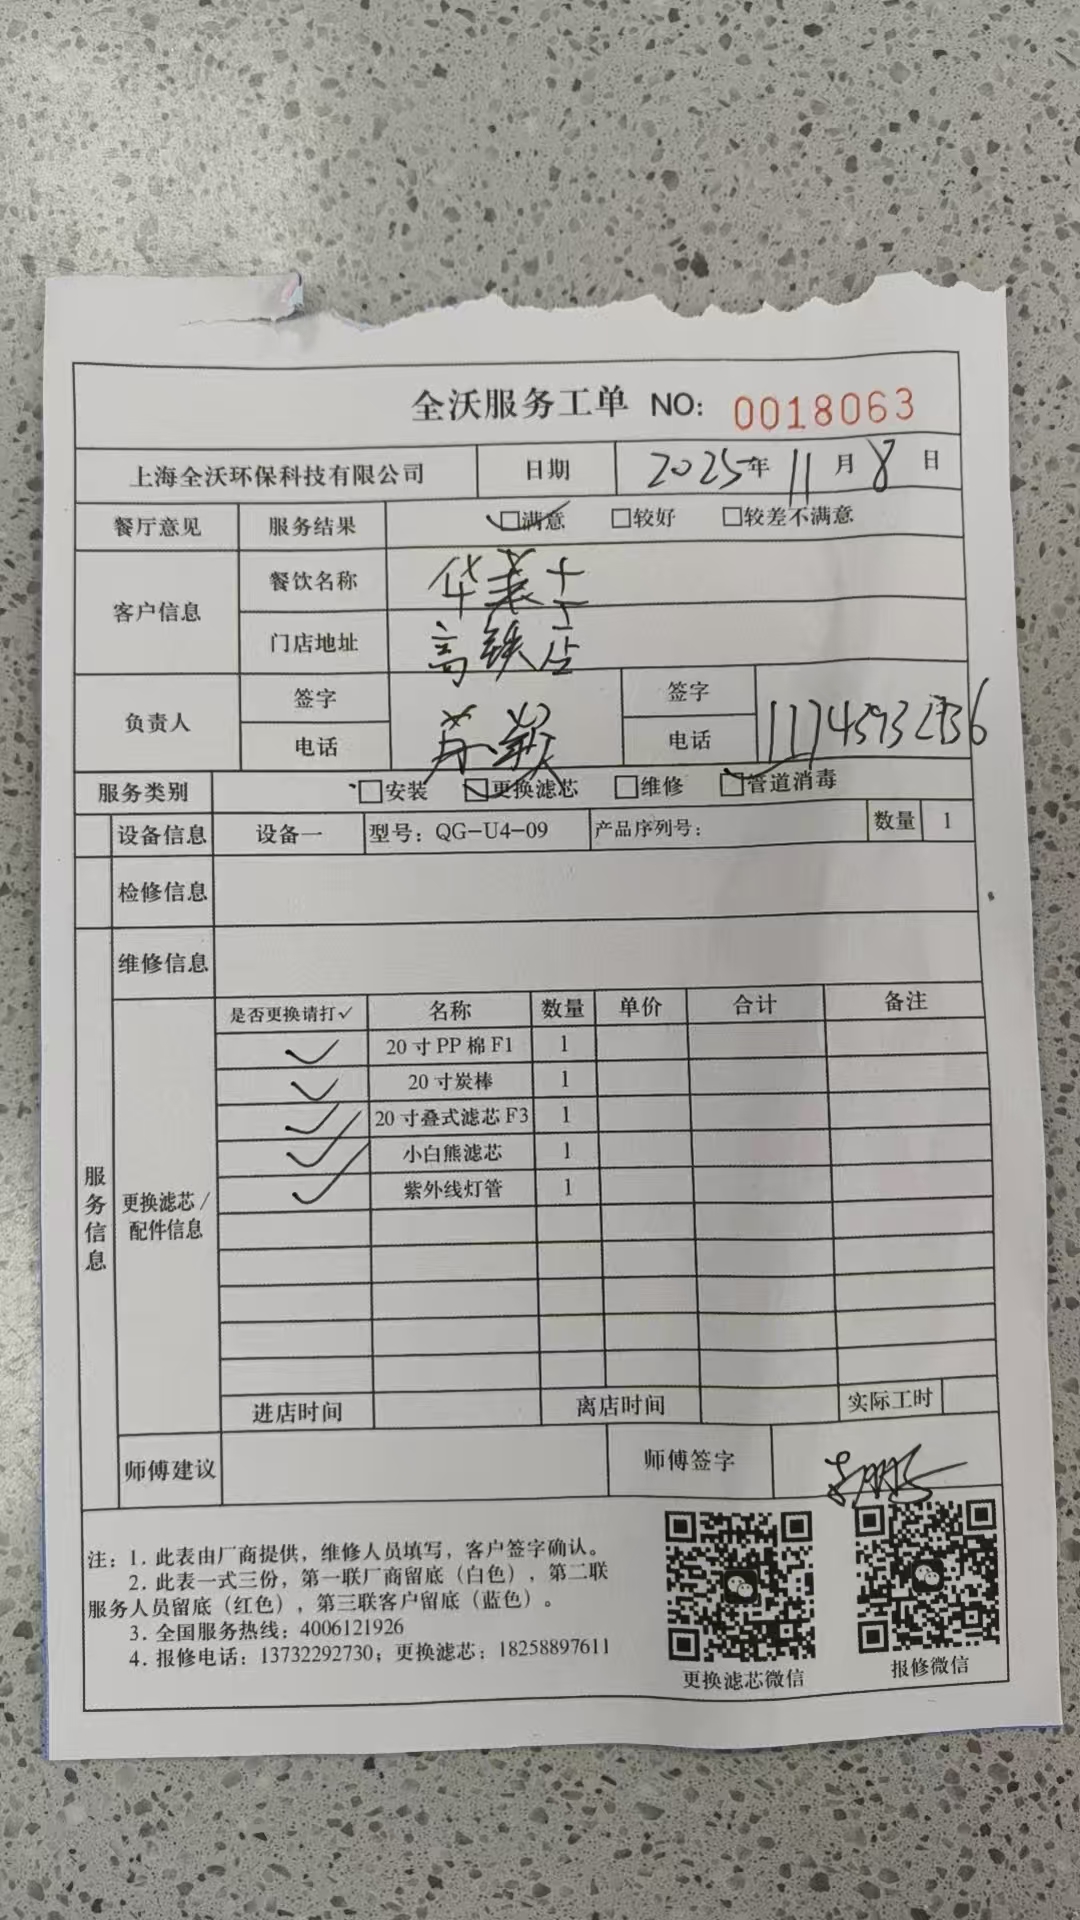 全沃服务工单 NO: 0018063
上海全沃环保科技有限公司 日期 2025年 11月 8日
餐厅意见 服务结果 ☑满意 □较好 □较差不满意
客户信息 餐饮名称 华莱士
门店地址 高铁店
负责人 签字 签字
电话 电话
服务类别 □安装 ☑更换滤芯 □维修 ☑管道消毒
设备信息 设备一 型号：QG-U4-09 产品序列号： 数量 1
检修信息
维修信息
服务信息
更换滤芯/
配件信息
是否更换请打✓ 名称 数量 单价 合计 备注
✓ 20寸PP棉F1 1
✓ 20寸炭棒 1
✓ 20寸叠式滤芯F3 1
✓ 小白熊滤芯 1
✓ 紫外线灯管 1
进店时间 离店时间 实际工时
师傅建议 师傅签字
注：1.此表由厂商提供，维修人员填写，客户签字确认。
2.此表一式三份，第一联厂商留底（白色），第二联
服务人员留底（红色），第三联客户留底（蓝色）。
3.全国服务热线：4006121926
4.报修电话：13732292730；更换滤芯：18258897611
更换滤芯微信 报修微信